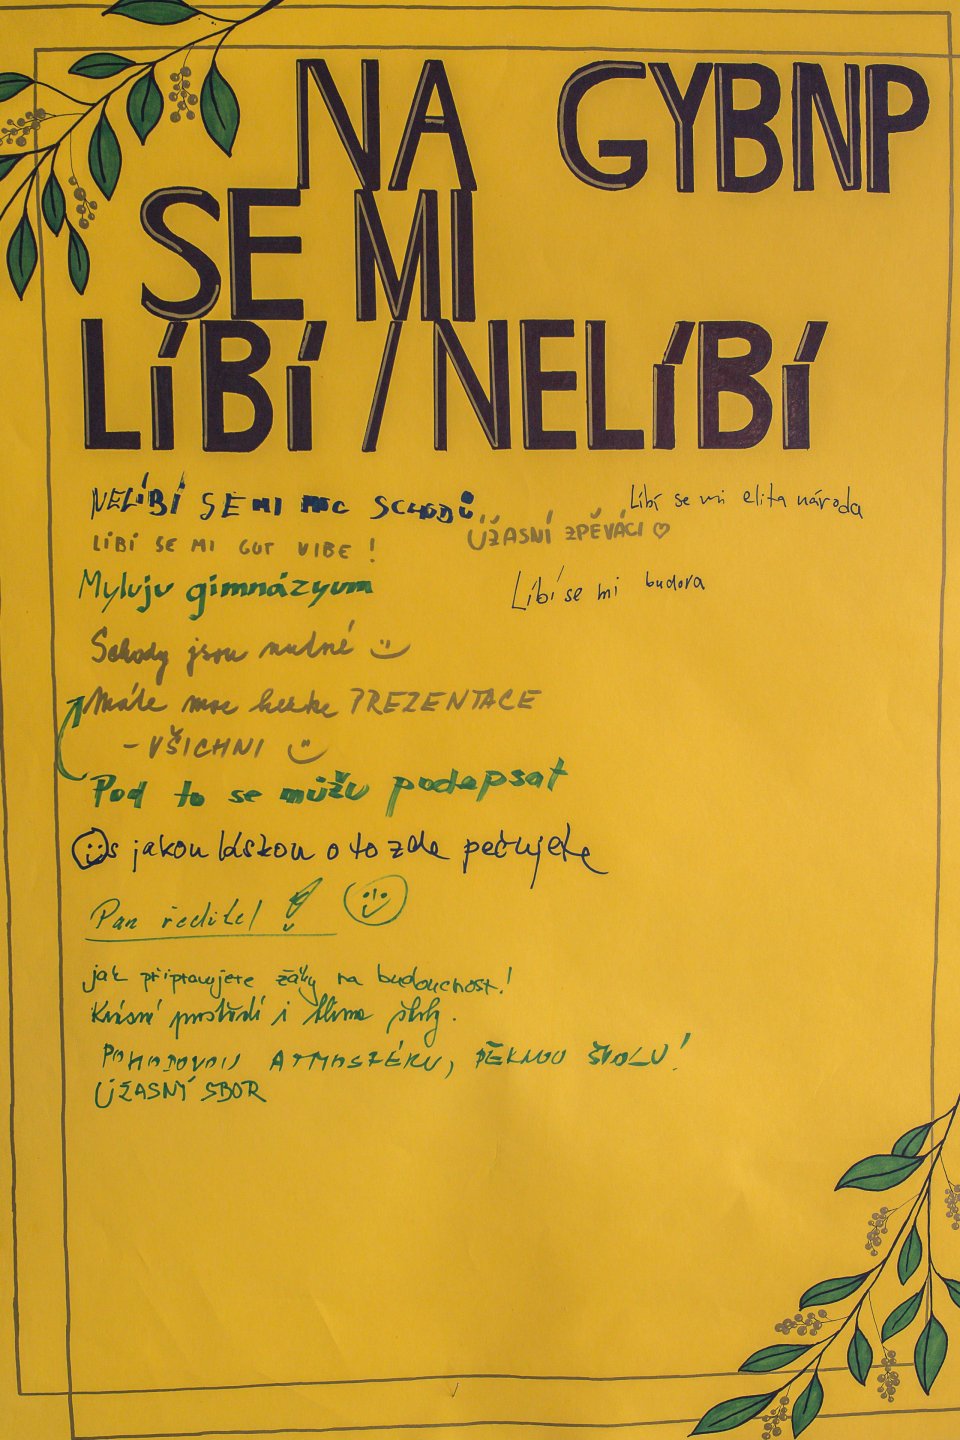 NA GYBNP
SE MI
LÍBÍ / NELÍBÍ
NELÍBÍ SE MI MOC SCHODŮ
Líbí se mi elita národa
ÚŽASNÍ ZPĚVÁCI ♡
LÍBÍ SE MI GUT VIBE !
Myluju gimnázyum
Líbí se mi budova
Schody jsou nutné
Máte moc hezké PREZENTACE
- VŠICHNI
Pod to se můžu podepsat
s jakou láskou o to zde pečujete
Pan ředitel !
jak připravujete žáky na budoucnost!
Krásné prostředí i klima školy.
POHODOVOU ATMOSFÉRU, PĚKNOU ŠKOLU!
ÚŽASNÝ SBOR